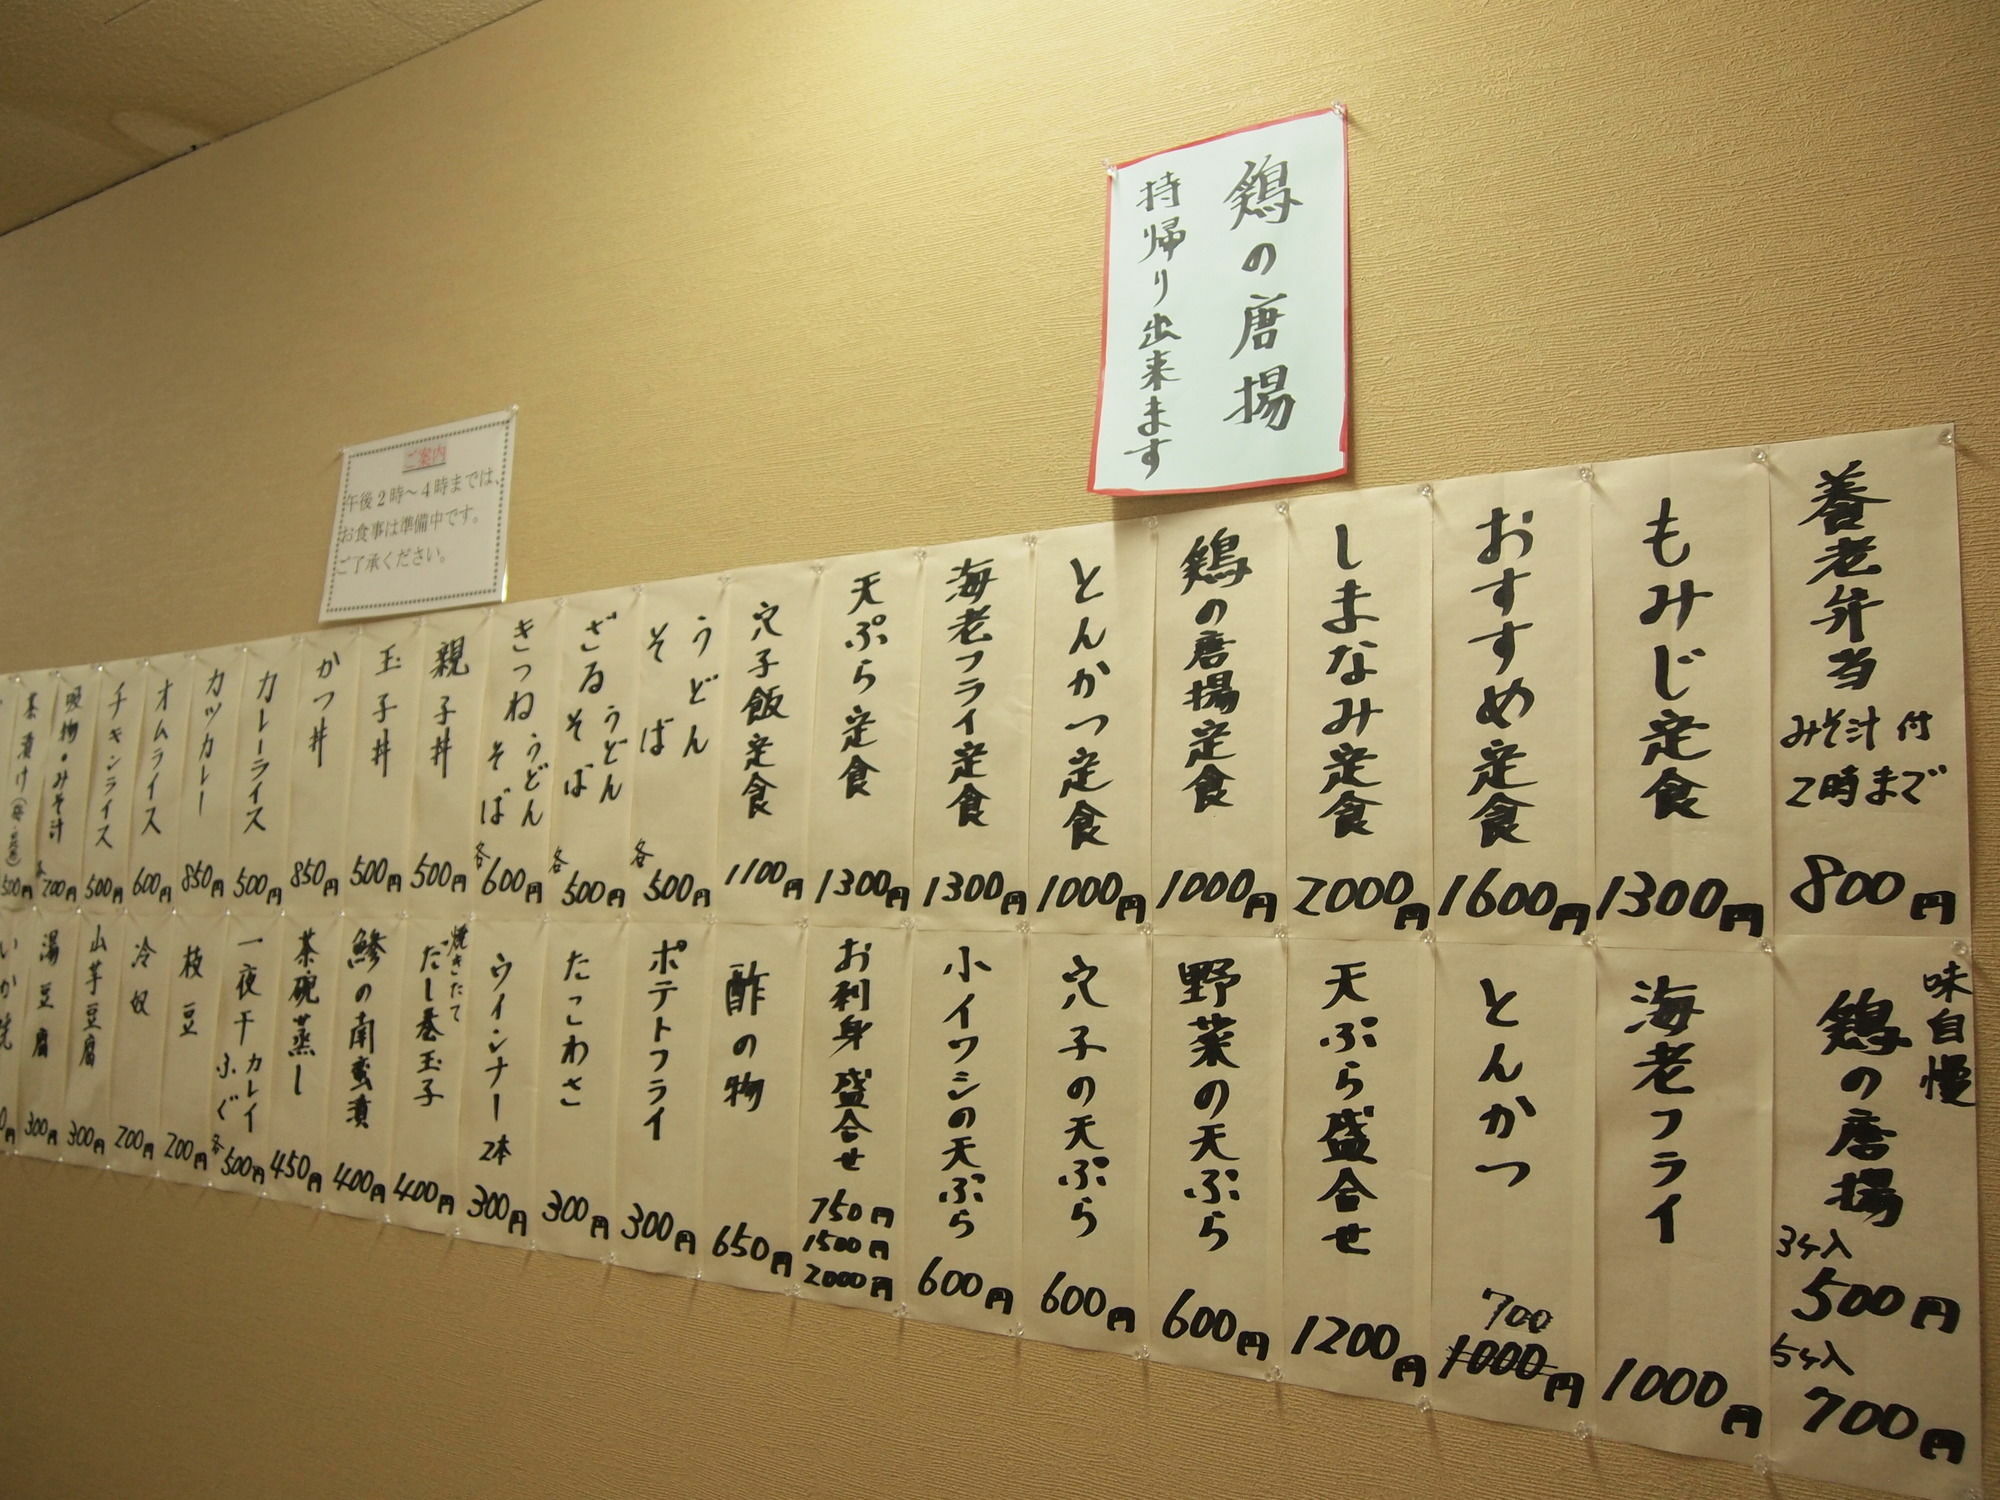 鶏の唐揚
持帰り出来ます
ご案内
午後2時～4時までは、
お食事は準備中です。
ご了承ください。
養老弁当
みそ汁付
2時まで
800円
もみじ定食
1300円
おすすめ定食
1600円
しまなみ定食
2000円
鶏の唐揚定食
1000円
とんかつ定食
1000円
海老フライ定食
1300円
天ぷら定食
1300円
穴子飯定食
1100円
うどん
そば
各500円
ざるうどん
そば
各500円
きつねうどん
そば
各600円
親子丼
500円
玉子丼
500円
かつ丼
850円
カレーライス
500円
カツカレー
850円
オムライス
600円
チキンライス
500円
吸物・みそ汁
各200円
茶漬け
500円
味自慢
鶏の唐揚
3ケ入
500円
5ケ入
700円
海老フライ
1000円
とんかつ
700
1000円
天ぷら盛合せ
1200円
野菜の天ぷら
600円
穴子の天ぷら
600円
小イワシの天ぷら
600円
お刺身盛合せ
750円
1500円
2000円
酢の物
650円
ポテトフライ
300円
たこわさ
300円
ウインナー2本
300円
焼きたて
だし巻玉子
400円
鯵の南蛮漬
400円
茶碗蒸し
450円
一夜干カレイ
ふぐ
各500円
枝豆
200円
冷奴
200円
山芋豆腐
300円
湯豆腐
300円
いか焼